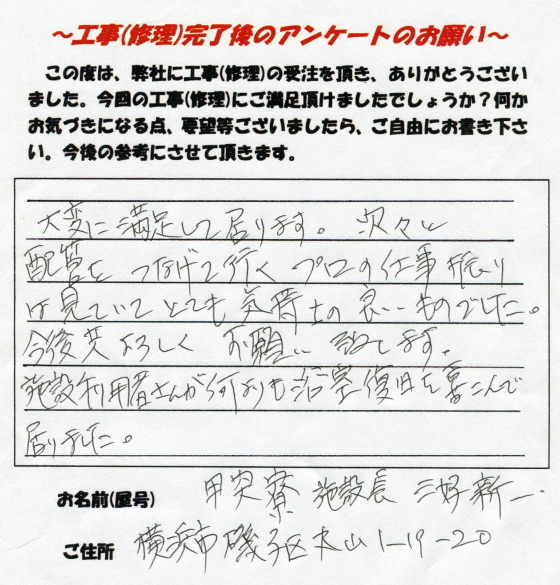 ～工事(修理)完了後のアンケートのお願い～
この度は、弊社に工事(修理)の受注を頂き、ありがとうござい
ました。今回の工事(修理)にご満足頂けましたでしょうか？何か
お気づきになる点、要望等ございましたら、ご自由にお書き下さ
い。今後の参考にさせて頂きます。
大変に満足して居ります。次々と
配管をつなげて行くプロの仕事振り
は見ていてとても気持の良いものでした。
今後共よろしくお願い致します。
施設利用者さんが何よりも浴室復旧を喜こんで
居りました。
お名前(屋号) 甲突寮 施設長 三好新一
ご住所 横浜市磯子区丸山1-19-20